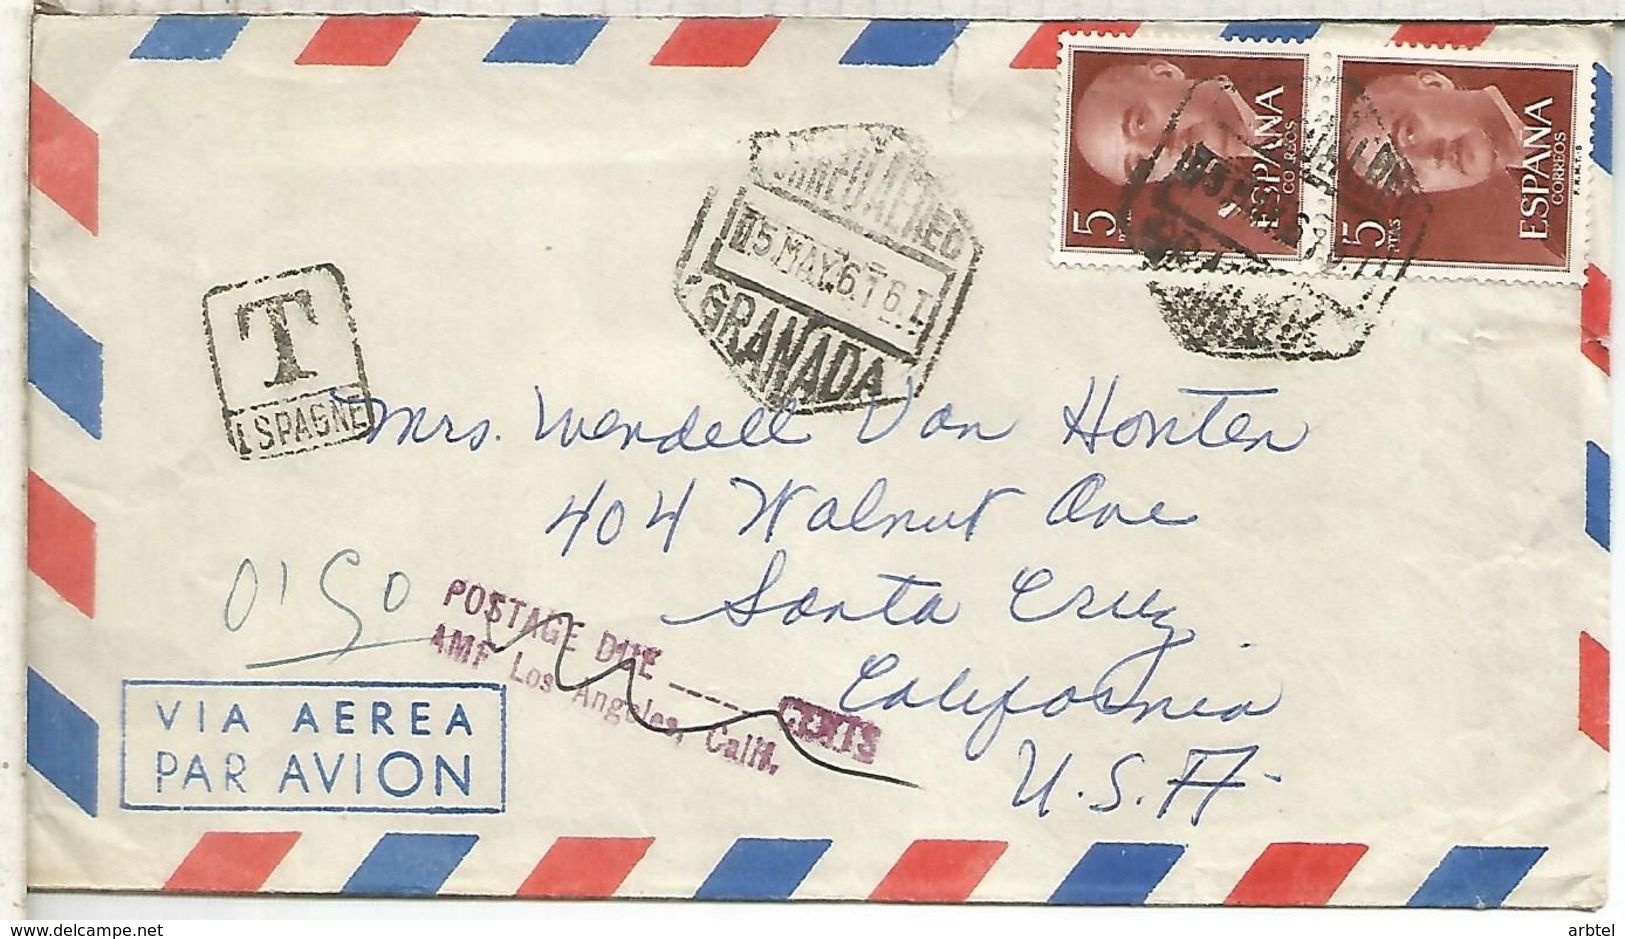 5
PTAS
ESPAÑA
CORREOS
5
PTAS
ESPAÑA
CORREOS
F.N.M.T.-B
CORREO AEREO
15 MAY. 67 6.T
GRANADA
T
ESPAGNE
Mrs. Wendell Van Honten
404 Walnut Ave
Santa Cruz
California
U.S.A-
0'50
POSTAGE DUE ------ CENTS
AMF Los Angeles, Calif.
VIA AEREA
PAR AVION
delcampe.net
arbtel